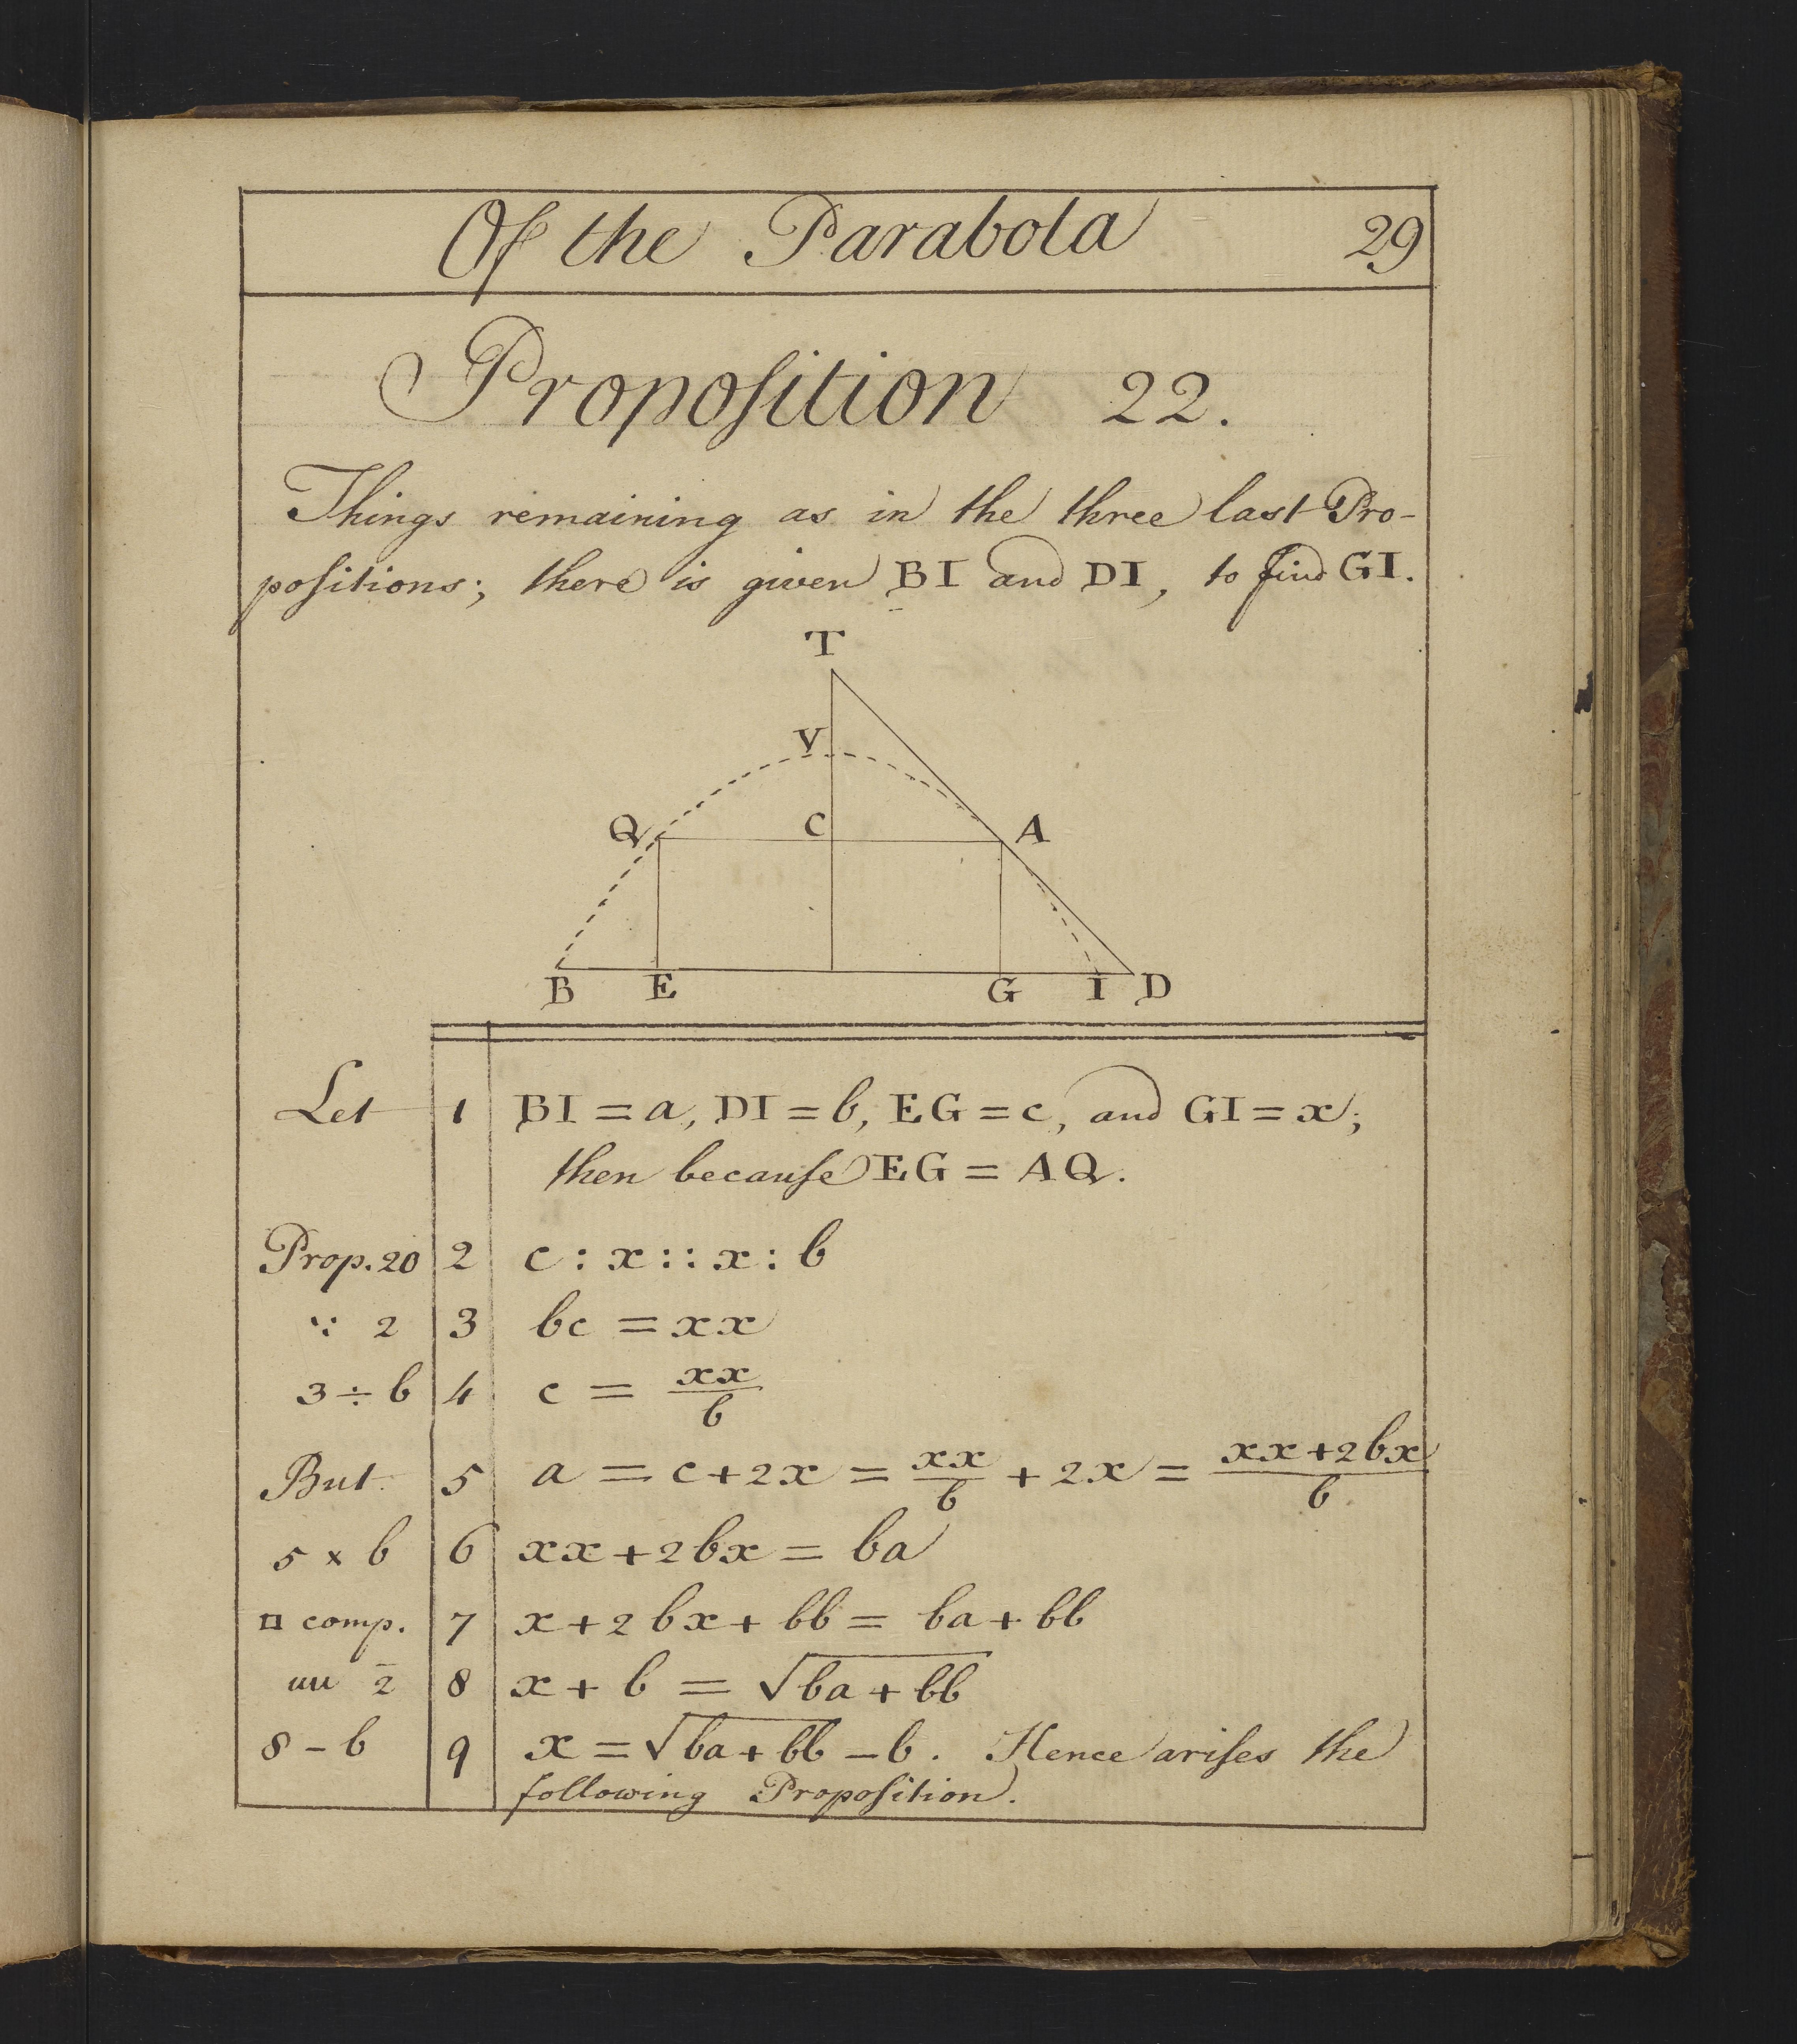 Of the Parabola 29
Propoſition 22.
Things remaining as in the three last Pro-
poſitions; there is given BI and DI, to find GI.
T
V
Q C A
B E G I D
Let 1 BI = a, DI = b, EG = c, and GI = x;
then becauſe EG = AQ.
Prop. 20 2 c : x :: x : b
∵ 2 3 bc = xx
3 ÷ b 4 c = xx/b
But 5 a = c + 2x = xx/b + 2x = xx + 2bx/b
5 × b 6 xx + 2bx = ba
□ comp. 7 x + 2bx + bb = ba + bb
uu 2 8 x + b = √ba + bb
8 - b 9 x = √ba + bb - b. Hence ariſes the
following Propoſition.